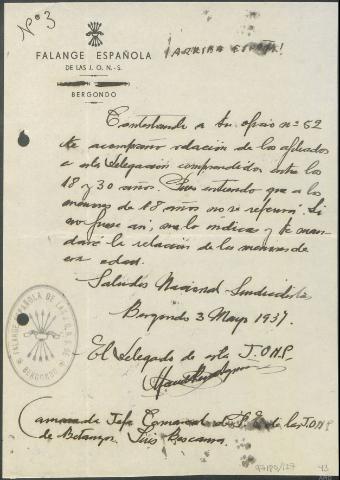 Nº 3
FALANGE ESPAÑOLA
DE LAS J. O. N. - S.
BERGONDO
¡ARRIBA ESPAÑA!
Contestando a tu oficio nº 52
te acompaño relación de los afiliados
a esta Delegación comprendidos entre los
18 y 30 años. Pues entiendo que a los
menores de 18 años no se referirá. Si
así fuese me lo indicas y te man-
daré la relación de los menores de
esa edad.
Saludos Nacional-Sindicalista
Bergondo 3 Mayo 1937.
El Delegado de esta J.O.N.P.
FALANGE ESPAÑOLA DE LAS J.O.N.S. DE
BERGONDO
Camarada Jefe Comarcal de F.E. de las J.O.N.
de Betanzos Luis
43